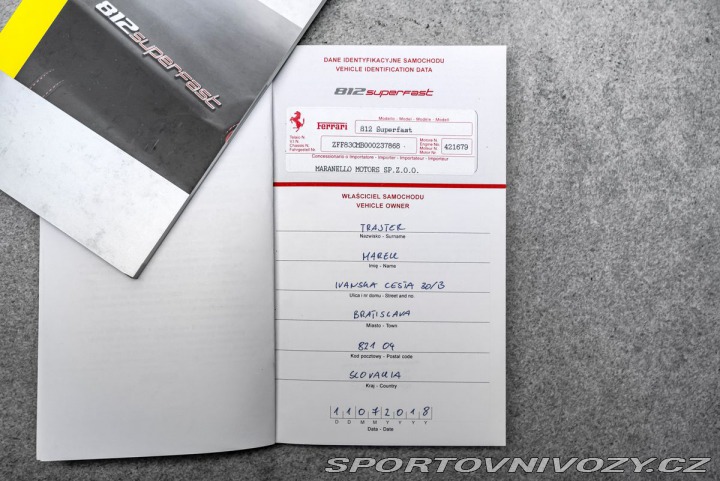 812 superfast
DANE IDENTYFIKACYJNE SAMOCHODU
VEHICLE IDENTIFICATION DATA
812 superfast
Modello - Model - Modèle - Modell
Ferrari
812 Superfast
Telaio N.
V.I.N.
Chassis N.
Fahrgestell Nr.
ZFF83CMB000237868
Motore N.
Engine No.
Moteur N.
Motor Nr.
421679
Concessionario o Importatore - Importer - Importateur - Importeur
MARANELLO MOTORS SP.Z.O.O.
WŁAŚCICIEL SAMOCHODU
VEHICLE OWNER
TRAJTER
Nazwisko - Surname
MAREK
Imię - Name
IVANSKA CESTA 30/B
Ulica i nr domu - Street and no.
BRATISLAVA
Miasto - Town
821 04
Kod pocztowy - Postal code
SLOVAKIA
Kraj - Country
1 1 0 7 2 0 1 8
D D M M Y Y Y Y
Data - Date
SPORTOVNIVOZY.CZ